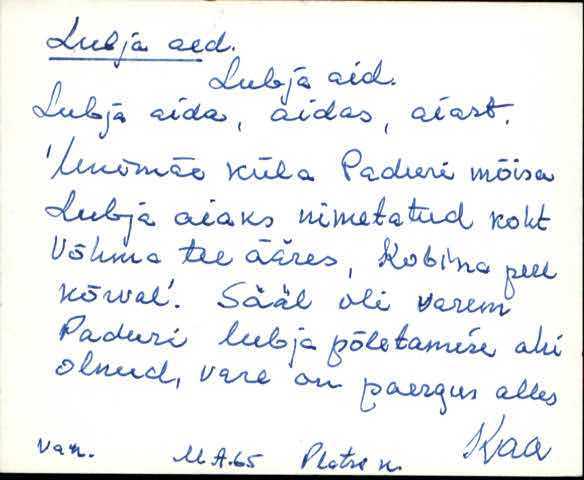 Lubja aed.
Lubja aid.
Lubja aida, aidas, aiast.
'Unõmäe küla Paduri mõisa
Lubja aiaks nimetatud koht
Võhma tee ääres, Kobina peel
kõrval'. Sääl oli varem
Paduri lubja põletamise ahi
olnud, vare on paergus alles
Kaa
van. M.A.65 Platse k.